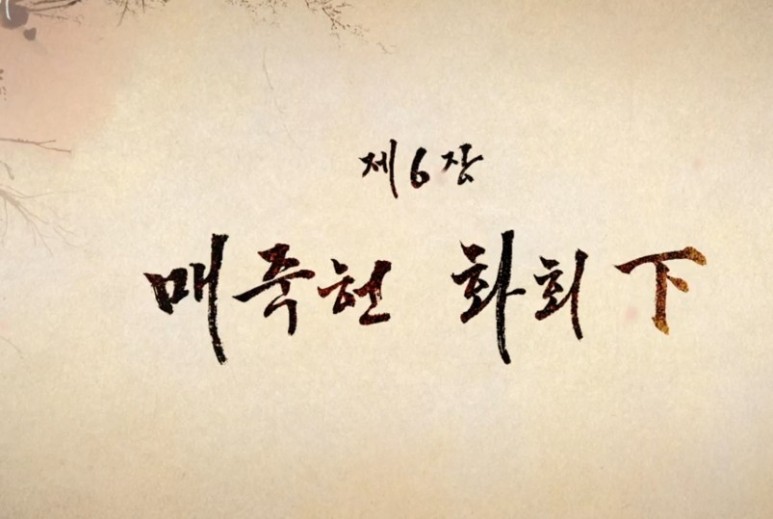 제6장
매죽헌 화회 下